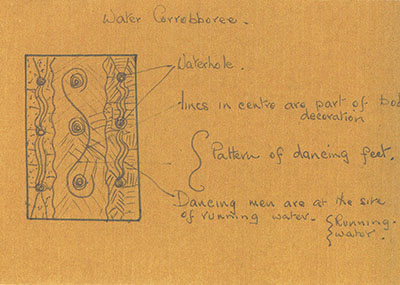 Water Corrobboree.
Waterhole.
lines in centre are part of bod
decoration
Pattern of dancing feet.
Dancing men are at the site
of running water.
Running
water.